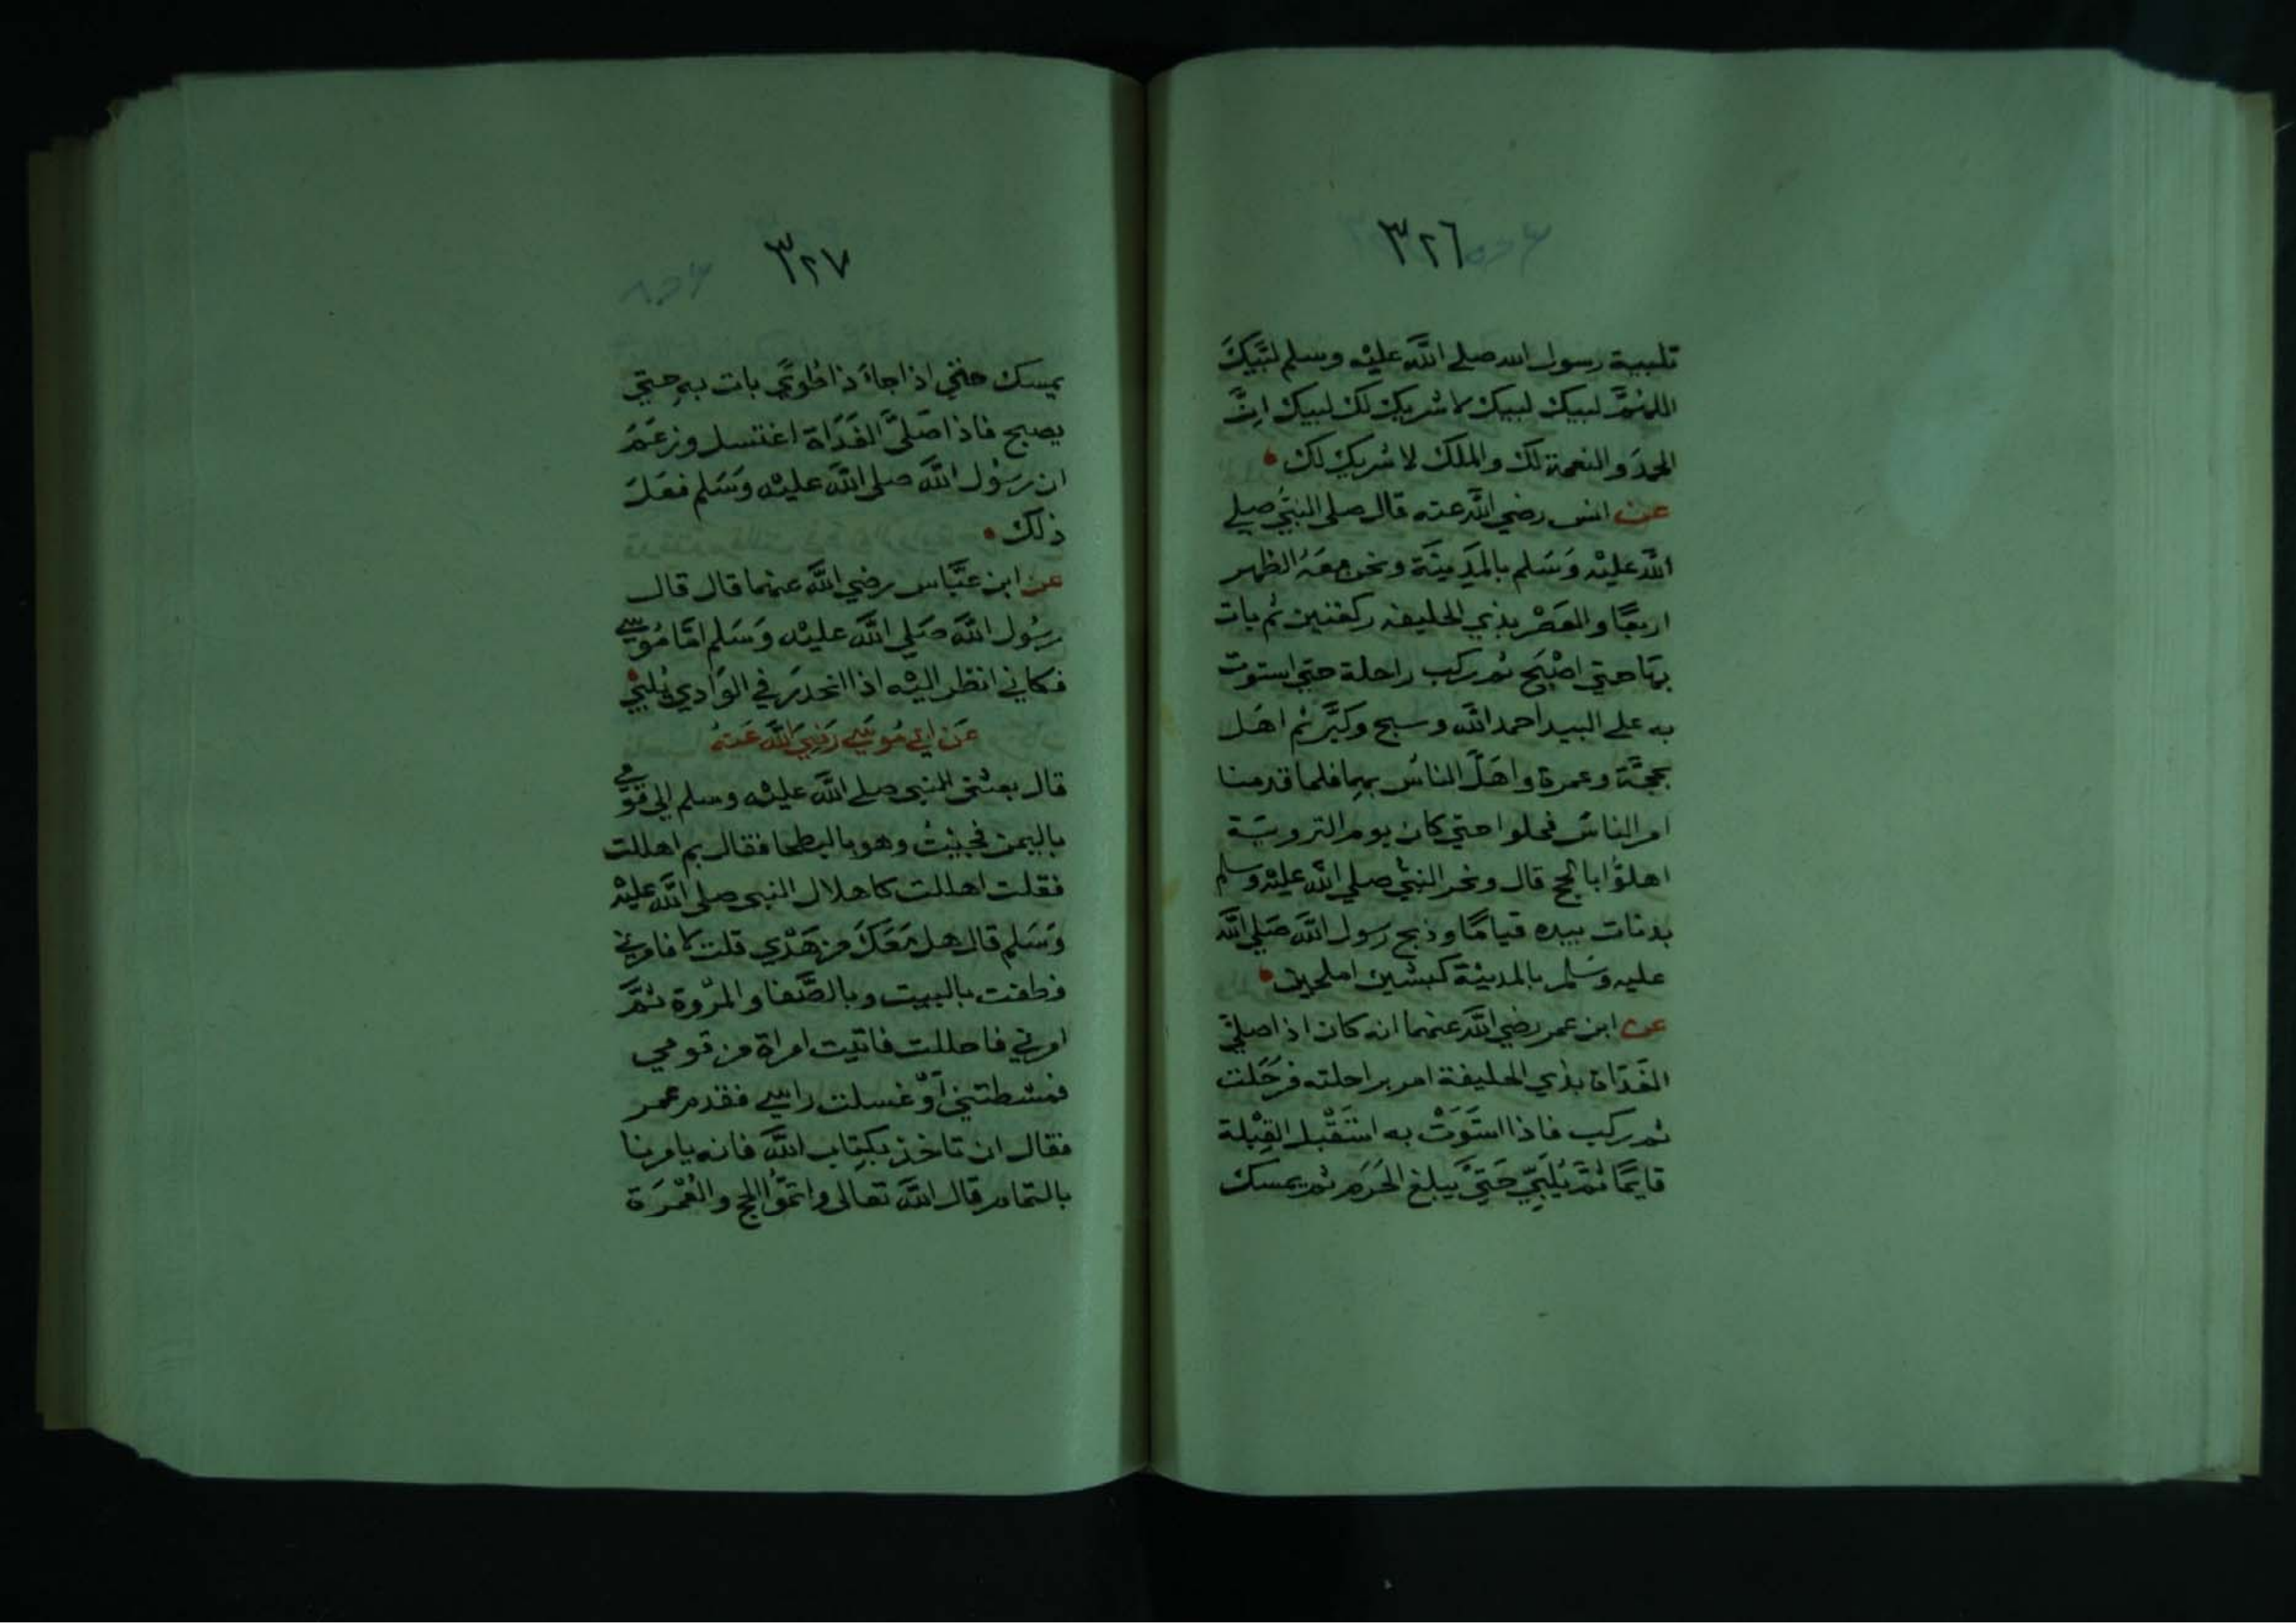 ٣٢٦
تلبية رسول الله صلي اللَّه عليْه وسلم لبَّيكَ
اللهُمَّ لبيك لبيك لا شريك لك لبيك اِنَّ
الحمدَ والنعمة لك والملك لا شريك لك
عن انس رضي اللَّه عنه قال صلي النبيُّ صلي
اللَّه عليْه وَسَلم بالمَدِينَة ونحن معَهُ الظهر
اربعًا والعَصْر بذي الحليفه ركعتين ثم بات
بهَا حتي اصْبَح ثم ركب راحلة حتي استوت
به علي البيدا حمد اللَّه وسبح وكبَّر ثم اهَل
بحجَّة وعمرة واهَلَّ الناسُ بهما فلما قدمنا
امر الناسَ فحلوا حتي كان يوم التروية
اهلوُّا بالحج قال ونحر النبيُّ صلي اللَّه عليْه وسلم
بدنات بيده قيامًا وذبح رسول اللَّه صَلي اللَّه
عليه وسَلم بالمدينة كبشين املحين
عن ابن عمر رضي اللَّه عنهما انه كان اذا صليَّ
الغَدَاة بذي الحليفة امر براحلته فرُحَلت
ثم ركب فاذا استَوَتْ به استَقْبل القِبْلة
قايمًا ثمَّ يُلَبّي حَتيَّ يبلغ الحَرَم ثم يمسك
٣٢٧
يمسك حتي اذا جاءَ ذا طُويَّ بات به حتي
يصبح فاذا صَلىَّ الغَدَاة اغتسل وزعَمَ
ان رسَوُل اللَّه صلي اللَّه عليْه وَسَلم فعَلَ
ذلك
عن ابن عبَّاس رضي اللَّه عنهما قال قال
رسُول اللَّه صَلي اللَّه عليْه وَسَلم امَّا مُوسي
فكاني انظر اليْه اذا انحدرَ في الوَادي يُلبيّ
عَن ابي مُوسَي رَضيَ اللَّه عَنهُ
قال بعثني النبي صلي اللَّه عليْه وسلم الي قوْمي
باليمن فجيْتُ وهو بالبطحا فقال بم اهللت
فقلت اهللت كاهلال النبي صلي اللَّه عليْه
وَسَلم قال هل مَعَكَ من هَدْي قلت لا فامرني
فطفت بالبيت وبالصَّفا والمرْوة ثمَّ
امرني فاحللت فاتيت امراة من قومي
فمشطتني اَوْ غسلت راسي فقدم عمر
فقال ان ناخذ بكِتاب اللَّه فانه يامرنا
بالتمام قال اللَّه تعالى واتموُّا الحج والعُمْرَة